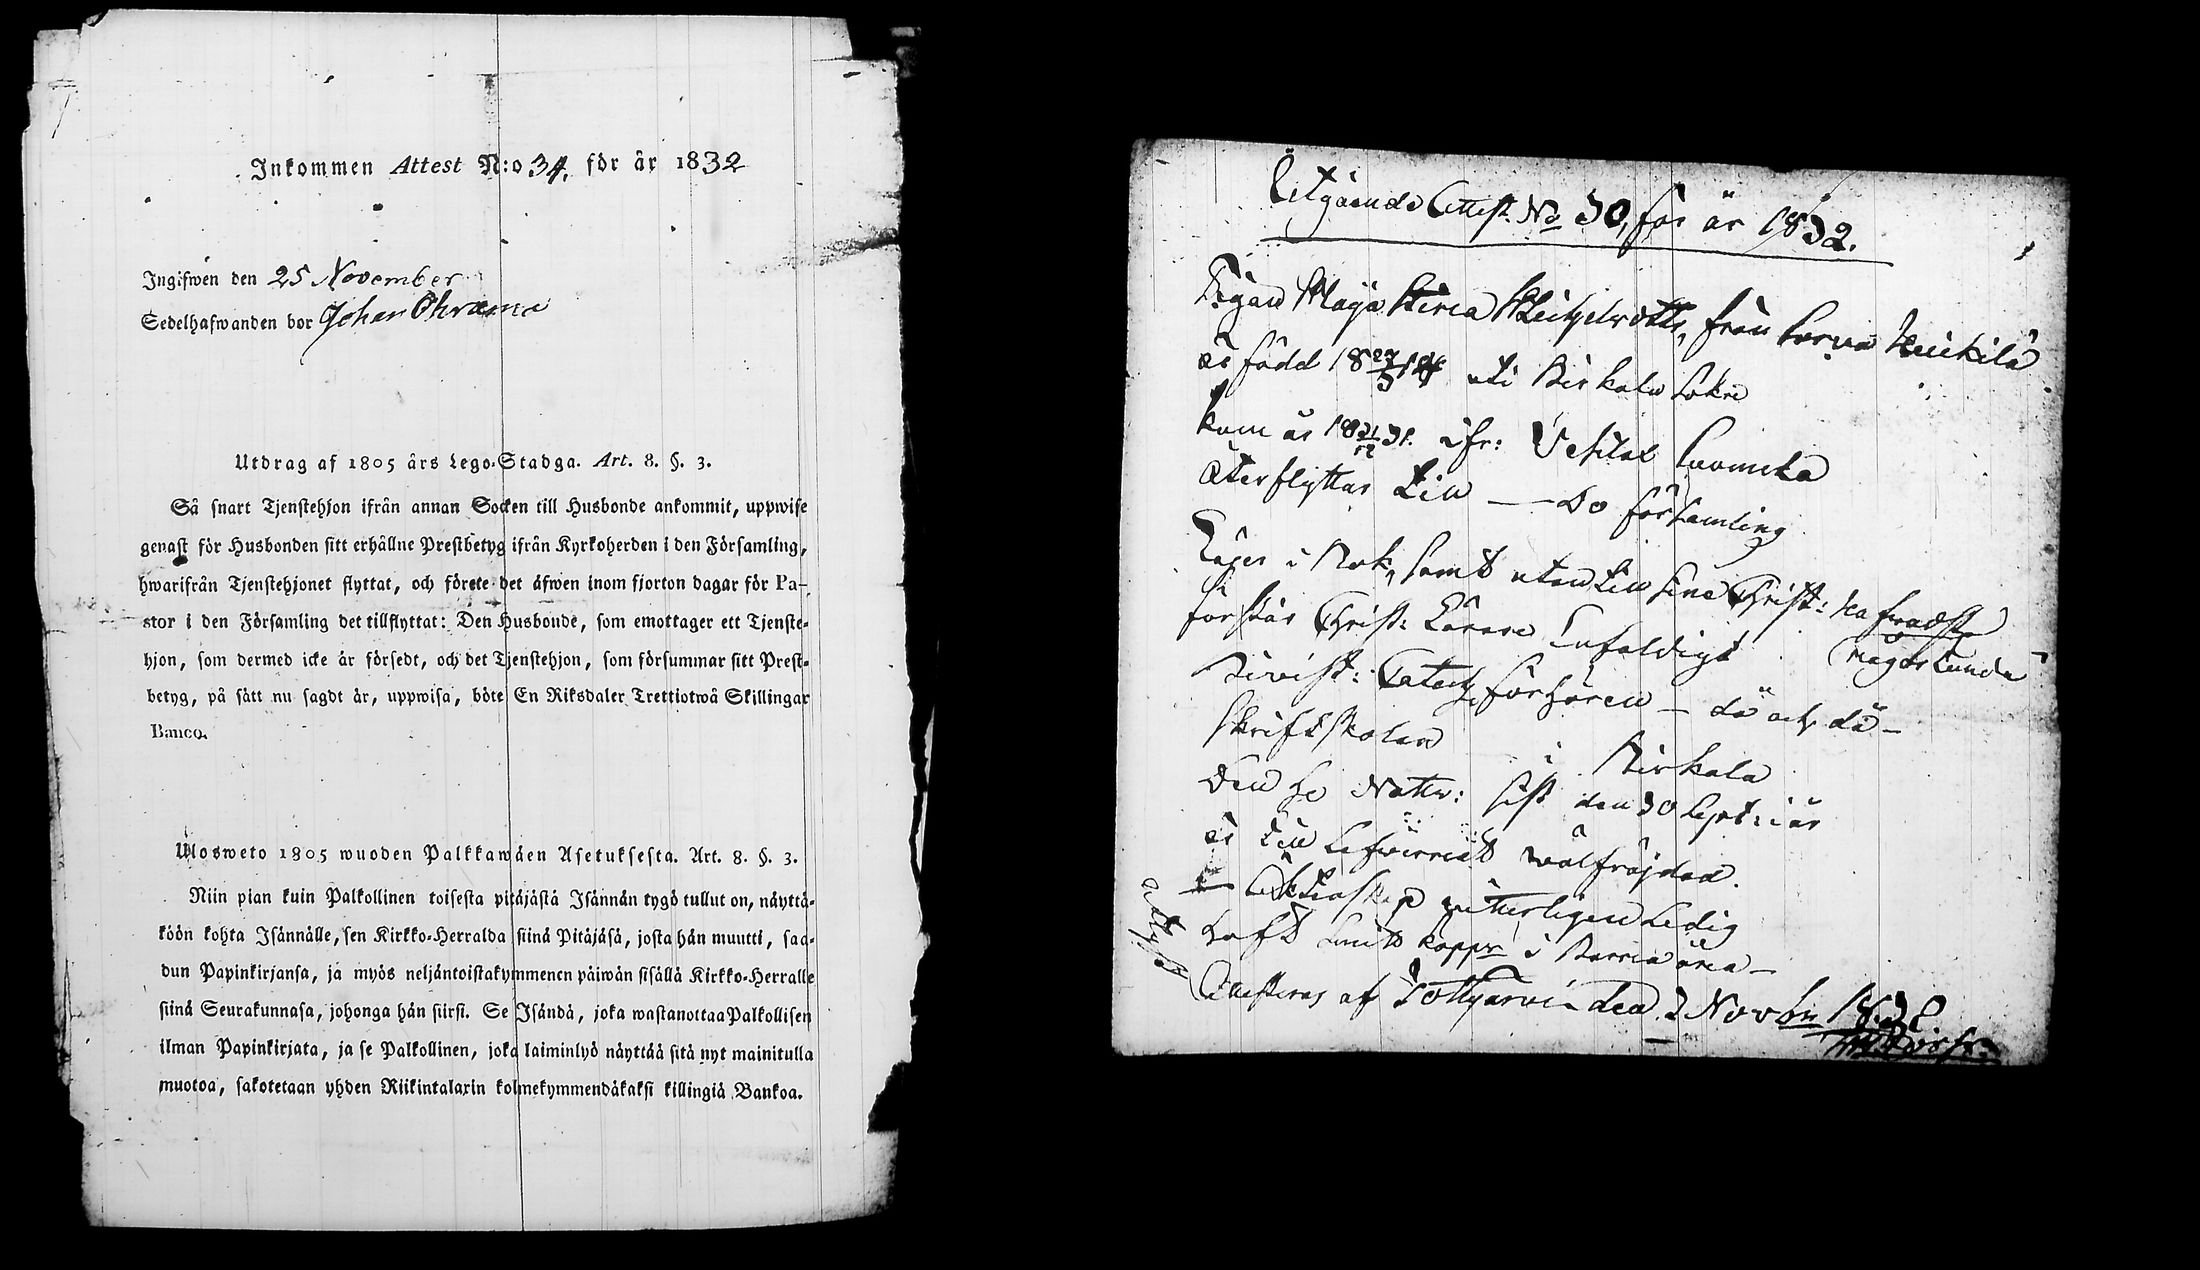 Inkommen Attest N:o 34. för år 1832
Ingifwen den 25 November
Sedelhafwanden bor Johan
Utdrag af 1805 års Lego-Stadga. Art. 8. §. 3.
Så snart Tjenstehjon ifrån annan Socken till Husbonde ankommit, uppwise
genast för Husbonden sitt erhållne Prestbetyg ifrån Kyrkoherden i den Församling,
hwarifrån Tjenstehjonet flyttat, och förete det äfwen inom fjorton dagar för Pa-
stor i den Församling det tillflyttat: Den Husbonde, som emottager ett Tjenste-
hjon, som dermed icke är försedt, och det Tjenstehjon, som försummar sitt Prest-
betyg, på sätt nu sagdt är, uppwisa, böte En Riksdaler Trettiotwå Skillingar
Banco.
Ulosweto 1805 wuoden Palkkawäen Asetuksesta. Art. 8. §. 3.
Niin pian kuin Palkollinen toisesta pitäjästä Isännän tygö tullut on, näyttä-
köön kohta Isännälle, sen Kirkko-Herralda siinä Pitäjäsä, josta hän muutti, saa-
dun Papinkirjansa, ja myös neljäntoistakymmenen päiwän sisällä Kirkko-Herralle
siinä Seurakunnasa, johonga hän siirsi. Se Isändä, joka wastanottaa Palkollisen
ilman Papinkirjata, ja se Palkollinen, joka laiminlyö näyttää sitä nyt mainitulla
muotoa, sakotetaan yhden Riikintalarin kolmekymmendäkaksi killingiä Bankoa.
Utgående Attest No 30, för år 1832.
Pigan Maja Stina från
är född 18 27/3 uti Birkala Sokn
kom år 18 21/12 31. ifr:
återflyttar till — Do församling
Läser i Bok, samt utan till sina Christ:
förstår Christ: Läran Enfaldigt
Bivist: Catech förhören — då och då —
Skriftskolan i Birkala
Den He Nattv: sist den 30 Sept: i år
är till Lefvernet wälfräjdad.
till Äktenskap witterligen Ledig
haft koppr i Barna åren —
Attesteras af Tottijärvi den 2 Novbr 1832